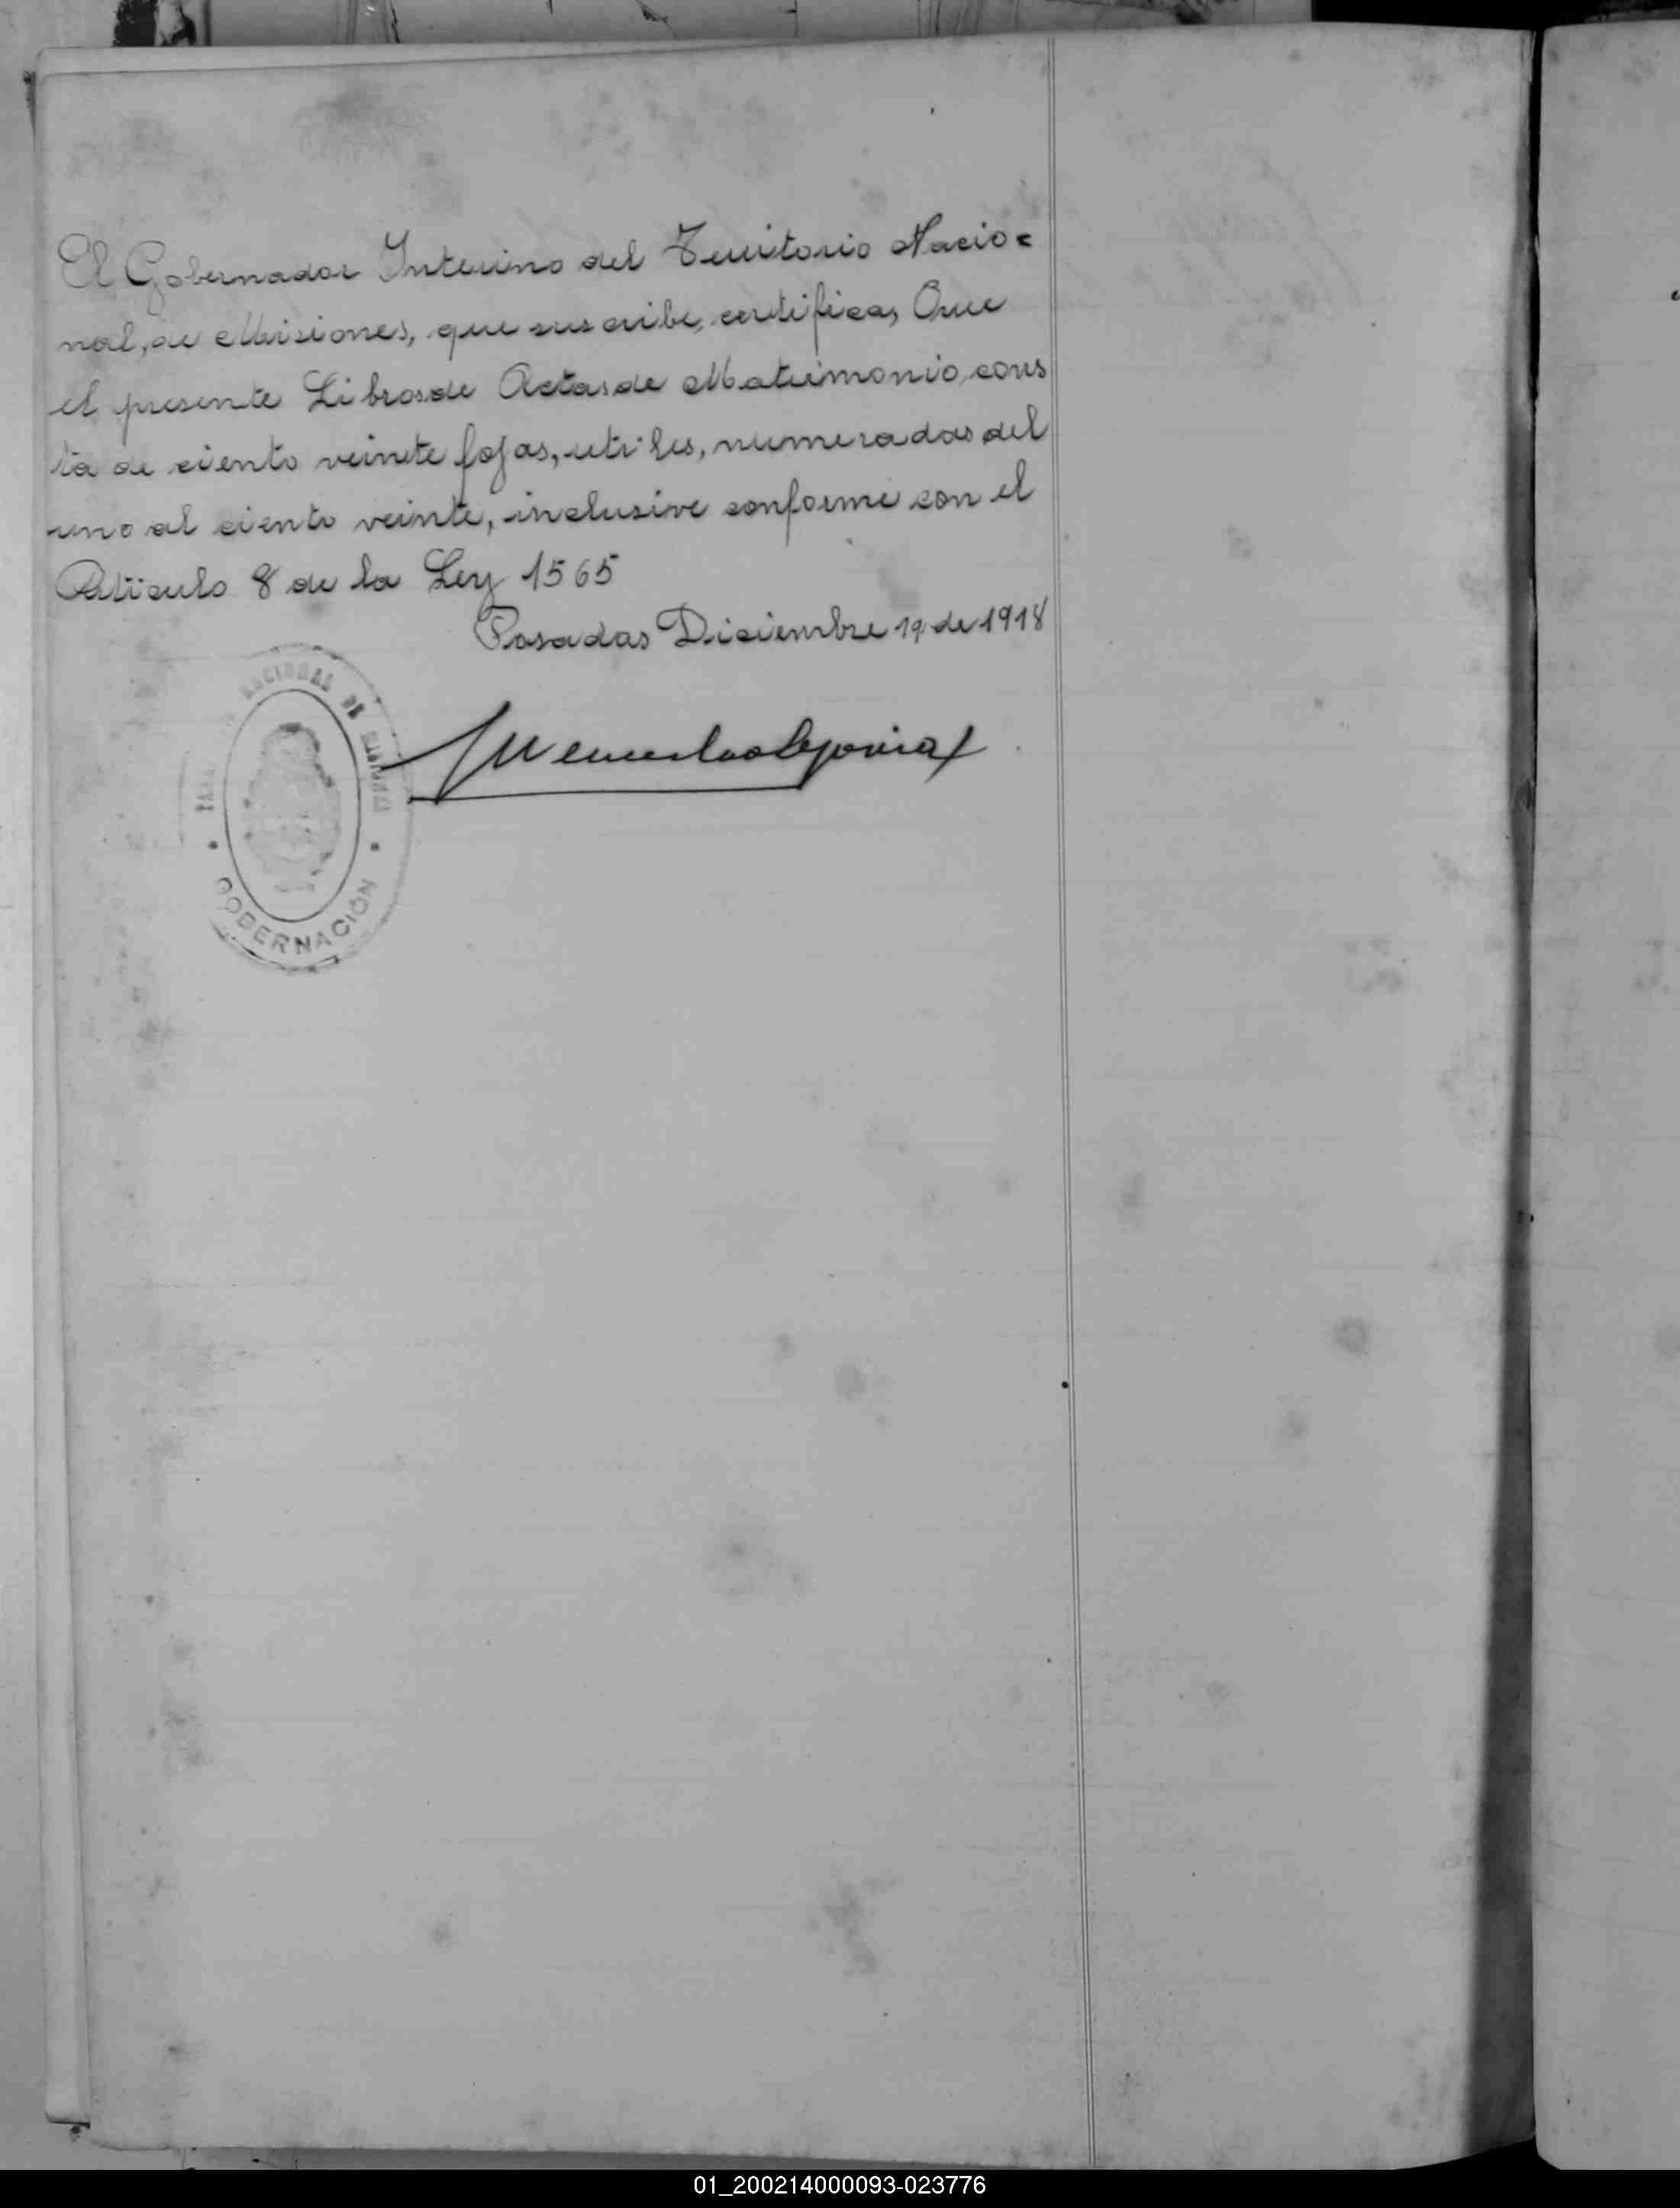 El Gobernador Interino del Territorio Nacio=
nal, de Misiones, que suscribe, certifica, Que
el presente Libros de Actas de Matrimonio, cons
ta de ciento veinte fojas, utiles, numeradas del
uno al ciento veinte, inclusive conforme con el
Artículo 8 de la Ley 1565
Posadas Diciembre 19 de 1918
NACIONAL DE MISIONES
GOBERNACIÓN
01_200214000093-023776